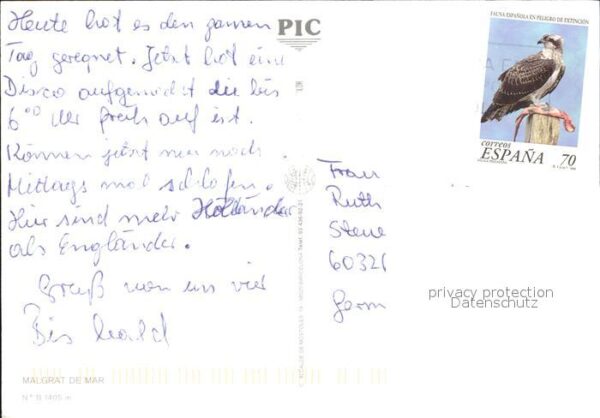 Heute hat es den ganzen
Tag geregnet. Jetzt hat eine
Disco aufgemacht die bis
6⁰⁰ der früh auf ist.
Können jetzt nur noch
Mittags mal schlafen.
Hier sind mehr Holländer
als Engländer.
Gruß von uns vier
Bis bald
PIC
FAUNA ESPAÑOLA EN PELIGRO DE EXTINCION
correos
ESPAÑA 70
Frau
Ruth
60321
Germ
privacy protection
Datenschutz
MALGRAT DE MAR
N.° B 1405 m